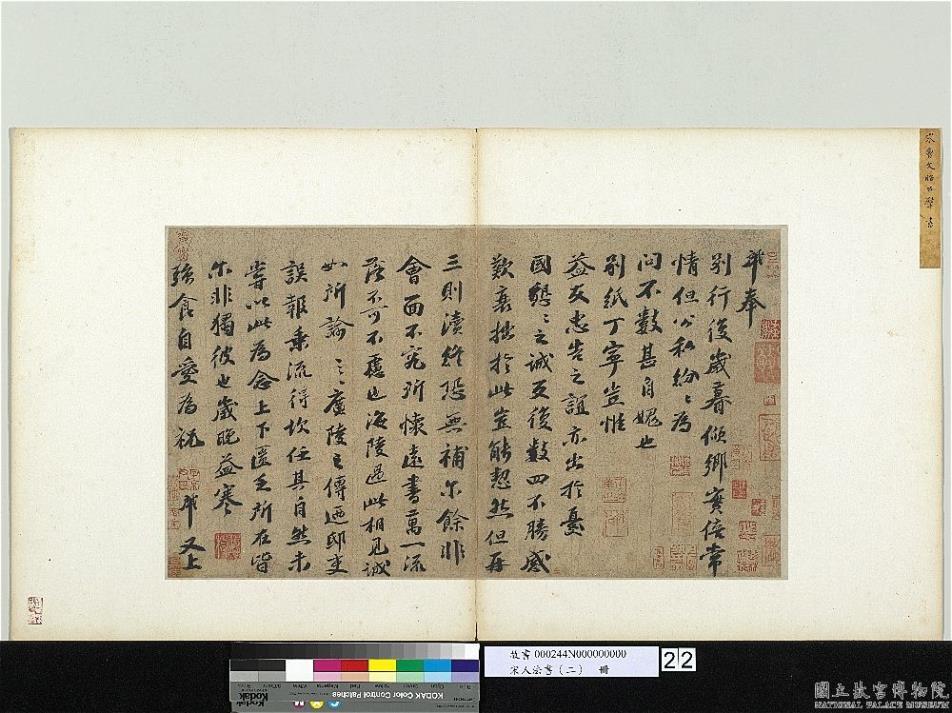 奉
別行後歲暮傾鄉實倍常
情但公私紛〻為
問不數甚自媿也
別紙丁寧豈惟
益友忠告之誼亦出於憂
國懇〻之誠反復數四不勝感
歎衰拙於此豈能恝然但再
三則瀆終恐無補尔餘非
會面不究所懷遠書萬一流
落不可不慮也海陵過此相見誠
如所諭〻廬陵之傳迺邸吏
誤報乘流得坎任其自然未
嘗以此為念上下匱乏所在皆
尔非獨彼也歲晚益寒
強食自愛為祝
又上
故書 000244N000000000
宋人法書(二) 冊
22
Kodak Color Control Patches
Kodak
國立故宮博物院
NATIONAL PALACE MUSEUM